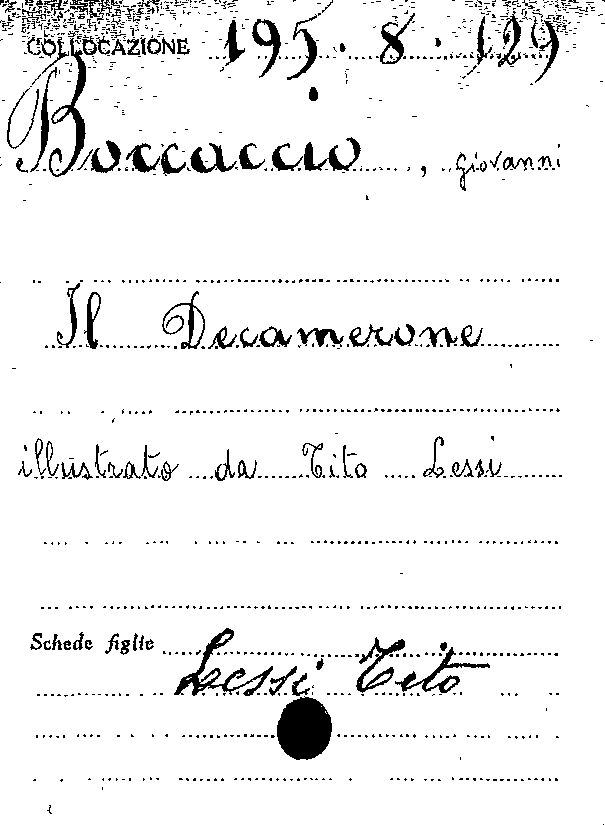 COLLOCAZIONE 195.8.129
Boccaccio, Giovanni
Il Decamerone
illustrato da Tito Lessi
Schede figlie
Lessi Tito